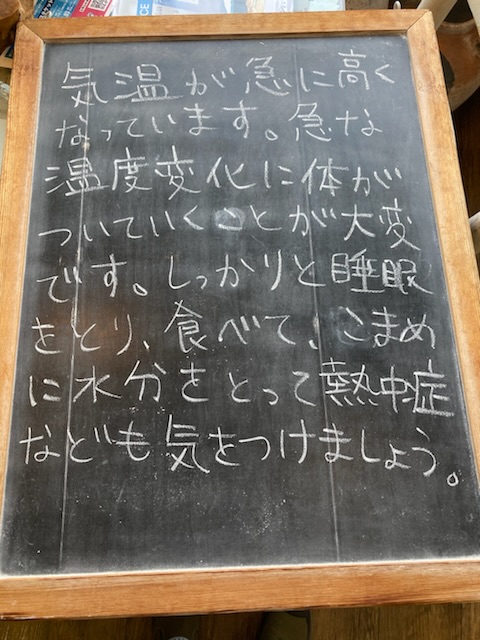 気温が急に高く
なっています。急な
温度変化に体が
ついていくことが大変
です。しっかりと睡眠
をとり、食べて、こまめ
に水分をとって熱中症
なども気をつけましょう。